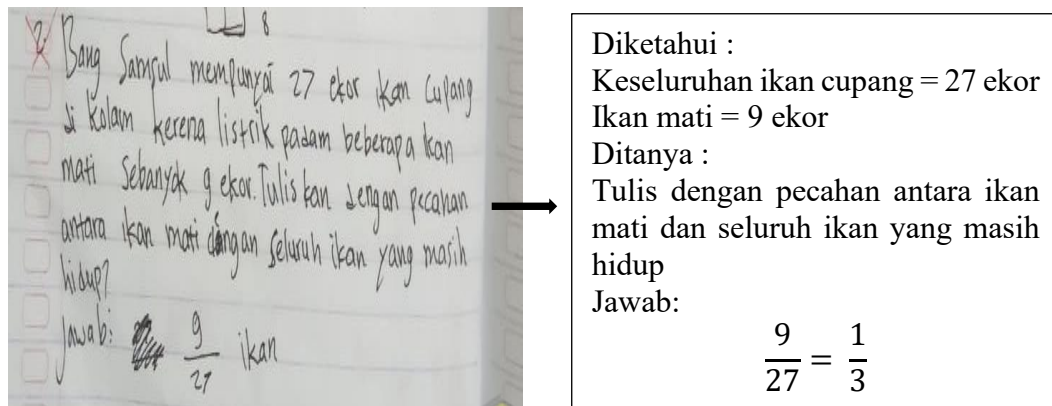 8
2. Bang Samsul mempunyai 27 ekor ikan cupang
di kolam kerena listrik padam beberapa ikan
mati sebanyak 9 ekor. Tulis kan dengan pecahan
antara ikan mati dengan seluruh ikan yang masih
hidup?
Jawab: 9/27 ikan
Diketahui :
Keseluruhan ikan cupang = 27 ekor
Ikan mati = 9 ekor
Ditanya :
Tulis dengan pecahan antara ikan
mati dan seluruh ikan yang masih
hidup
Jawab:
9/27 = 1/3